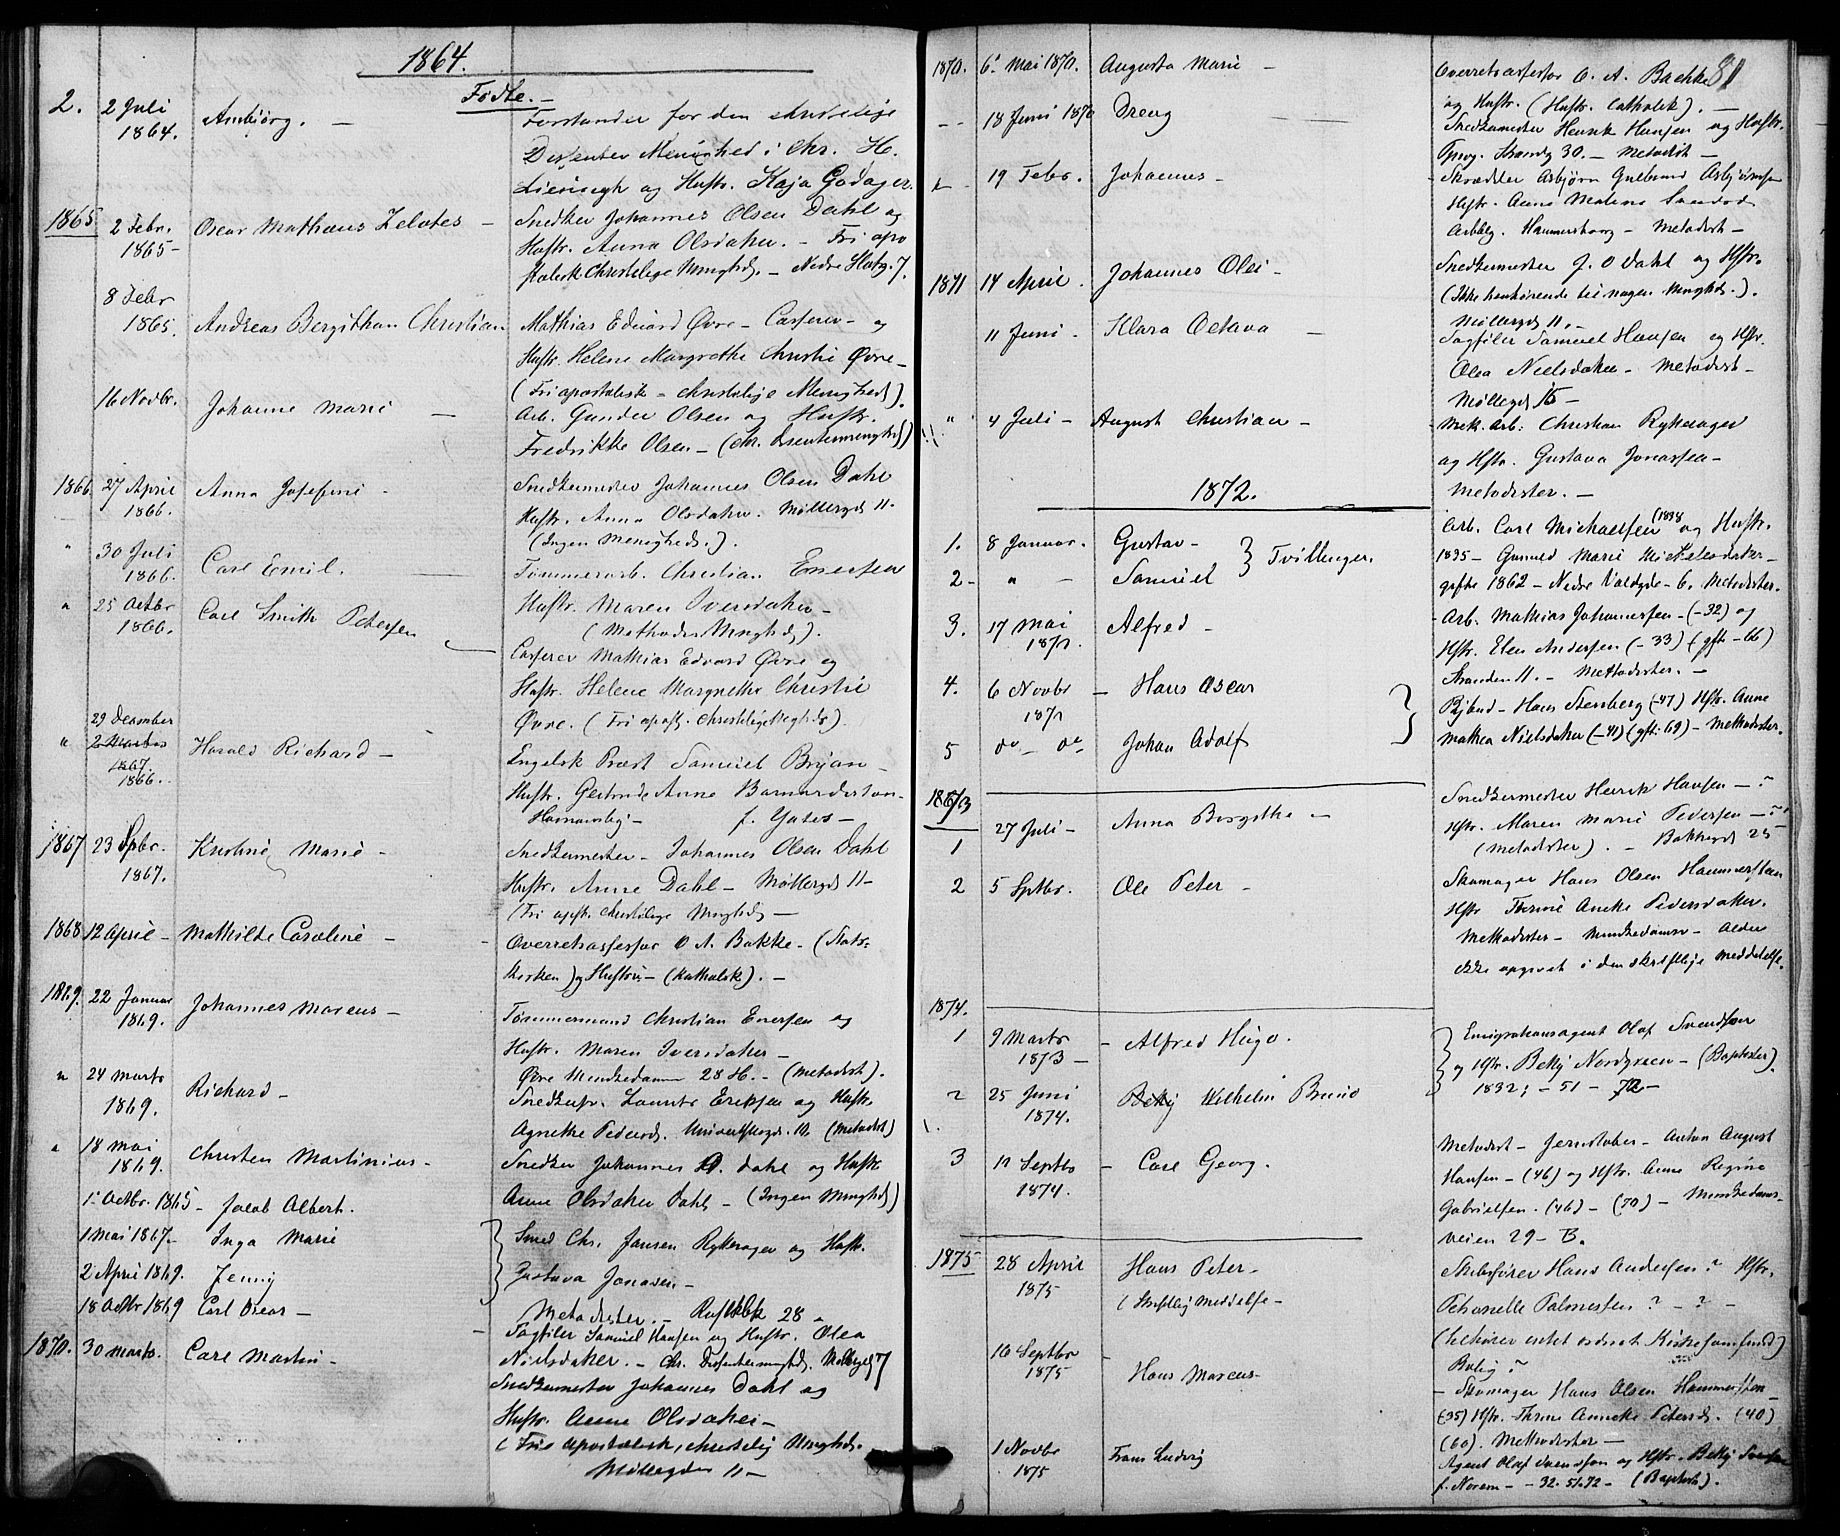 1864.
Fødte.-
2. 2 Juli 1864. Ambjørg. - Forstander for den christelige
Dissenter Menighed i Chr. H.
og Hustr. Kaja Godager.
1865 2 Febr. 1865- Oscar Mathæus Zelotes - Snedker Johannes Olsen Dahl og
Hustr. Anna Olsdatter. - Fri apo
stolisk Christelige Mnghd. - Nedre Slotsg. 7.
8 Febr 1865. Andreas Bergithon Christian Mathias Edvard Øvre - Casserer - og
Hustr. Helene Margrethe Christie Øvre -
(Fri apostolisk - christelige Menighed).
16 Novbr. Johanne Marie - Arb. Gunder Olsen og Hustr.
Fredrikke Olsen - (chr. Dissentermenighed)
1866 27 April 1866. Anna Josefine - Snedkermester Johannes Olsen Dahl
Hustr. Anna Olsdatter. Møllergd 11.
(Ingen Menighed.).
" 30 Juli 1866. Carl Emil. - Tømmerarb. Christian Enersen
Hustr. Maren Iversdatter -
(Methodist Mnghd).
" 25 Octbr 1866. Carl Smith Petersen - Casserer Mathias Edvard Øvre og
Hustr. Helene Margrethe Christie
Øvre. (Fri apost. Christelige Meghd).
" 29 December 1866. Harald Richard - Engelsk Præst Samuel Bryan -
Hustr. Gertrude Anne Barnardiston -
f. Yates -
1867 23 Spbr. 1867. Kristine Marie - Snedkermester - Johannes Olsen Dahl
Hustr. Anne Dahl - Møllergd 11 -
(Fri apst. christelige Mnghd -
1868 12 April - Mathilde Caroline - Overretsassessor O A. Bakke - (Stats-
kirken) og Hustru - (katholsk). -
1869. 22 Januar 1869. Johannes Marcus - Tømmermand Christian Enersen og
Hustr. Maren Iversdatter -
Øvre Munkedammen 28 H. - (Metodist).
" 24 Marts 1869. Richard - Snedkersv. Laurits Eriksen og Hustr.
Agnethe Pedersd. Universitetsgd. 10. (Metodist)
" 18 Mai 1869. Christen Martinius - Snedker Johannes O. Dahl og Hustr
Anne Olsdatter Dahl - (Ingen Mnghd)
1 Octbr. 1865 - Jacob Albert.
1 Mai 1867. - Inga Marie } Smed Chr. Jansen Rykkrager og Hustr.
2 April 1869. Jenny } Gustava Jonasen -
18 Octbr 1869 Carl Oscar - Metodister. - 28 -
1870. 30 Marts. Carl Martin - Sagfiler Samuel Hansen og Hustr. Olea
Nielsdatter. - Chr. Dissentermnghd. Møllergd 7
Snedkermester Johannes Dahl og
Hustr. Anne Olsdatter -
(Frie Apostolisk, christelig Mnghd.
Møllergden 11 -
81
1870. 6 Mai 1870. Augusta Marie - Overretsassessor O. A. Bachke
og Hustr. (Hustr. Catholsk). -
- - 18 Juni 1870 Dreng - Snedkermester Henrik Hansen og Hustr.
Strandg 30. - Metodist -
19 Febr. Johannes - Skrædder Asbjørn Gulbrand Asbjørnsen
Hstr. Anne Malene
Arbbg. Hammersborg - Metodist -
1871 14 April. Johannes Olei - Snedkermester J. O Dahl og Hstr.
(Ikke henhørende til nogen Mnghd.).
Møllergd 11. -
11 Juni - Klara Octava - Sagfiler Samuel Hansen og Hstr.
Olea Nielsdatter - Metodist -
Møllegd 15 -
" 4 Juli - August Christian - Mek. Arb: Christian Rykkrager
og Hstr. Gustava Jonassen -
Metodister. -
1872.
1. 8 Januar. Gustav - } Tvillinger. Arb. Carl Michaelsen (1838 og Hustr.
2 - " - Samuel 1835 - Gunnild Marie Mikkelsdatter -
gifte 1862 - Nedre Voldgde - 6. Metodister -
3. 17 Mai 1871. Alfred - Arb. Mathias Johannesen - (-32) og
Hstr. Elen Andersen (-33) (gft - 66)
Stranden 11. - Methodister. -
4. 6 Novbr 1871 - Hans Oscar } Bybud - Hans Stenberg (-47) Hstr. Anne
5 do - do - Johan Adolf } Mathea Nielsdatter (-41) (gft: 69) - Methodister
1873
1 27 Juli - Anna Birgitha - Snedkermester Henrik Hansen - ?
Hstr. Maren Marie Pedersen - ?
(Metodister). - Bakkegd 25 -
2 5 Sptbr. Ole Peter - Skomager Hans Olsen Hammerstein
Hstr Therine Aneke Pedersdatter.
Methodister - Munkedamsv - Alder
ikke opgivet i den skriftlige Meddelelse.
1874.
1 9 Marts 1873 - Alfred Hugo. } Emigrationsagent Olaf Svendsen
og Hstr. Betty Nordgreen - (Baptister).
1832; - 51 - 72 -
2 25 Juni 1874. Betty Wilhelm Bruno
3 11 Septbr 1874. - Carl Georg. Metodist - Jernstøber - Anton August
Hansen - (46) og Hstr. Anne Regine
Gabrielsen. (46) - (70) - Munkedams-
veien 29 - B.
1875 28 April 1875 Hans Peter - Skibsfører Hans Andersen ? Hstr.
(Skriftlig Meddelse - Petronelle Palmesten ? - ? -
(tilhører intet ordnet Kirkesamfund)
Bolig ?
10 Septbr 1875 - Hans Marcus - - Skomager Hans Olsen Hammersten -
(35) Hstr. Thrine Anneke Petersd. (40)
(60). Methodister -
1 Novbr 1875 Frans Ludvig Agent Olaf Svendsen og Hstr. Betty Svendsen
f. Norem - - 32. 51. 72 - (Baptist).